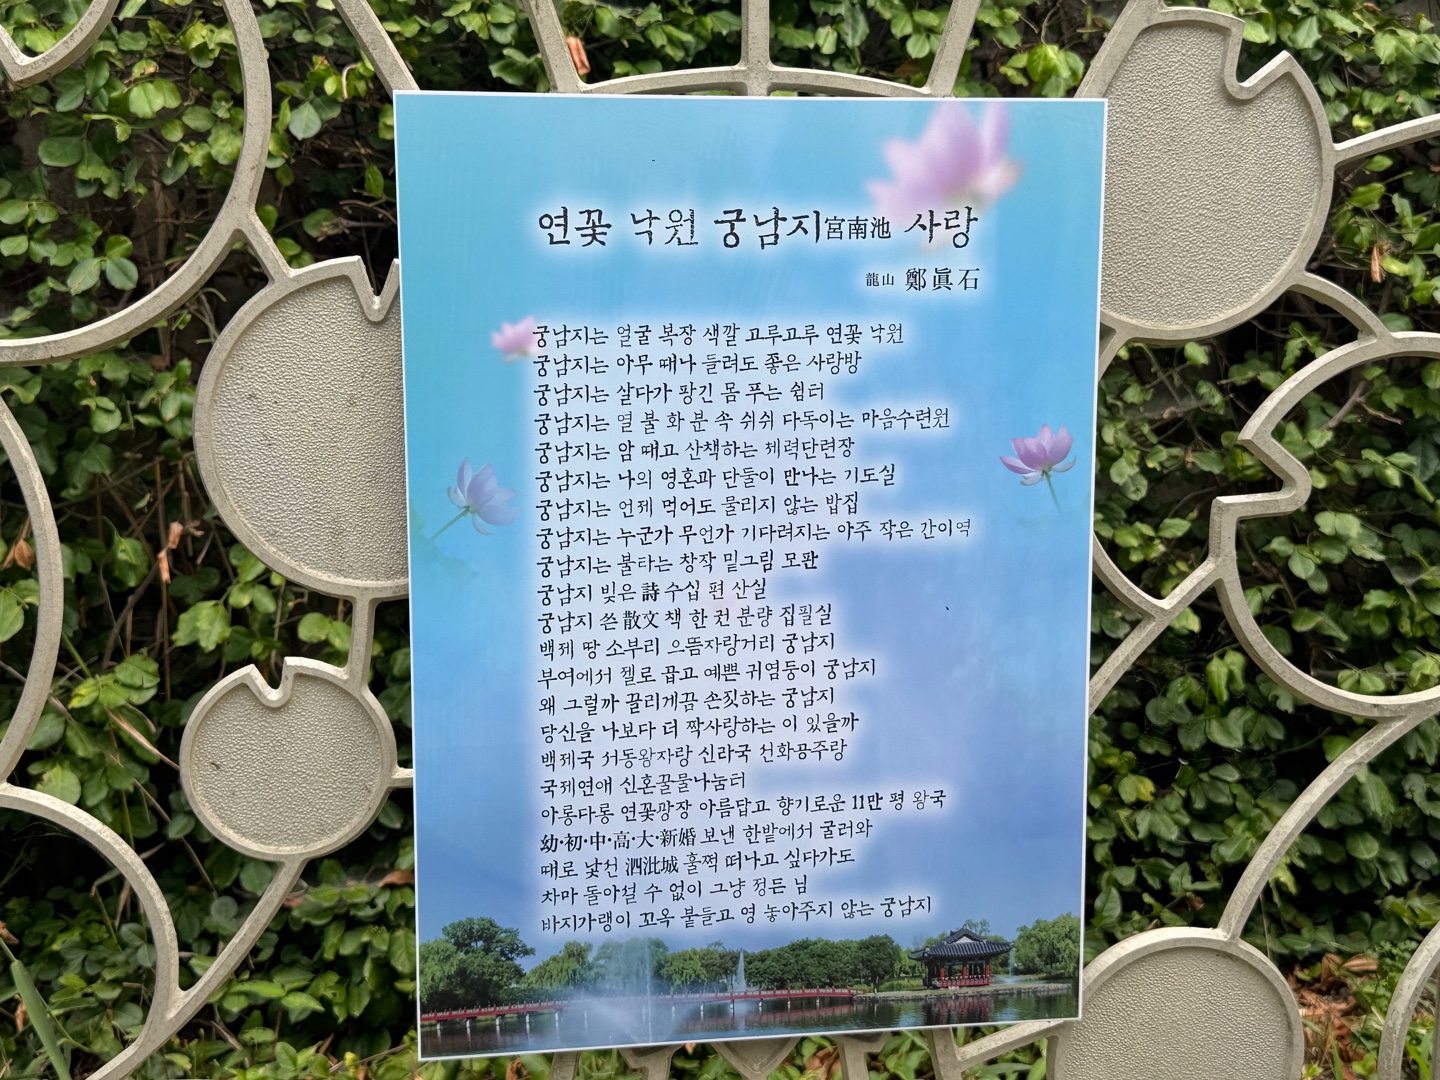 연꽃 낙원 궁남지宮南池 사랑
龍山 鄭眞石
궁남지는 얼굴 복장 색깔 고루고루 연꽃 낙원
궁남지는 아무 때나 들려도 좋은 사랑방
궁남지는 살다가 팡긴 몸 푸는 쉼터
궁남지는 열 불 화 분 속 쉬쉬 다독이는 마음수련원
궁남지는 암 때고 산책하는 체력단련장
궁남지는 나의 영혼과 단둘이 만나는 기도실
궁남지는 언제 먹어도 물리지 않는 밥집
궁남지는 누군가 무언가 기다려지는 아주 작은 간이역
궁남지는 불타는 창작 밑그림 모판
궁남지 빚은 詩 수십 편 산실
궁남지 쓴 散文 책 한 권 분량 집필실
백제 땅 소부리 으뜸자랑거리 궁남지
부여에서 젤로 곱고 예쁜 귀염둥이 궁남지
왜 그럴까 끌리게끔 손짓하는 궁남지
당신을 나보다 더 짝사랑하는 이 있을까
백제국 서동왕자랑 신라국 선화공주랑
국제연애 신혼꿀물나눔터
아롱다롱 연꽃광장 아름답고 향기로운 11만 평 왕국
幼·初·中·高·大·新婚 보낸 한밭에서 굴러와
때로 낯선 泗沘城 훌쩍 떠나고 싶다가도
차마 돌아설 수 없이 그냥 정든 님
바지가랭이 꼬옥 붙들고 영 놓아주지 않는 궁남지